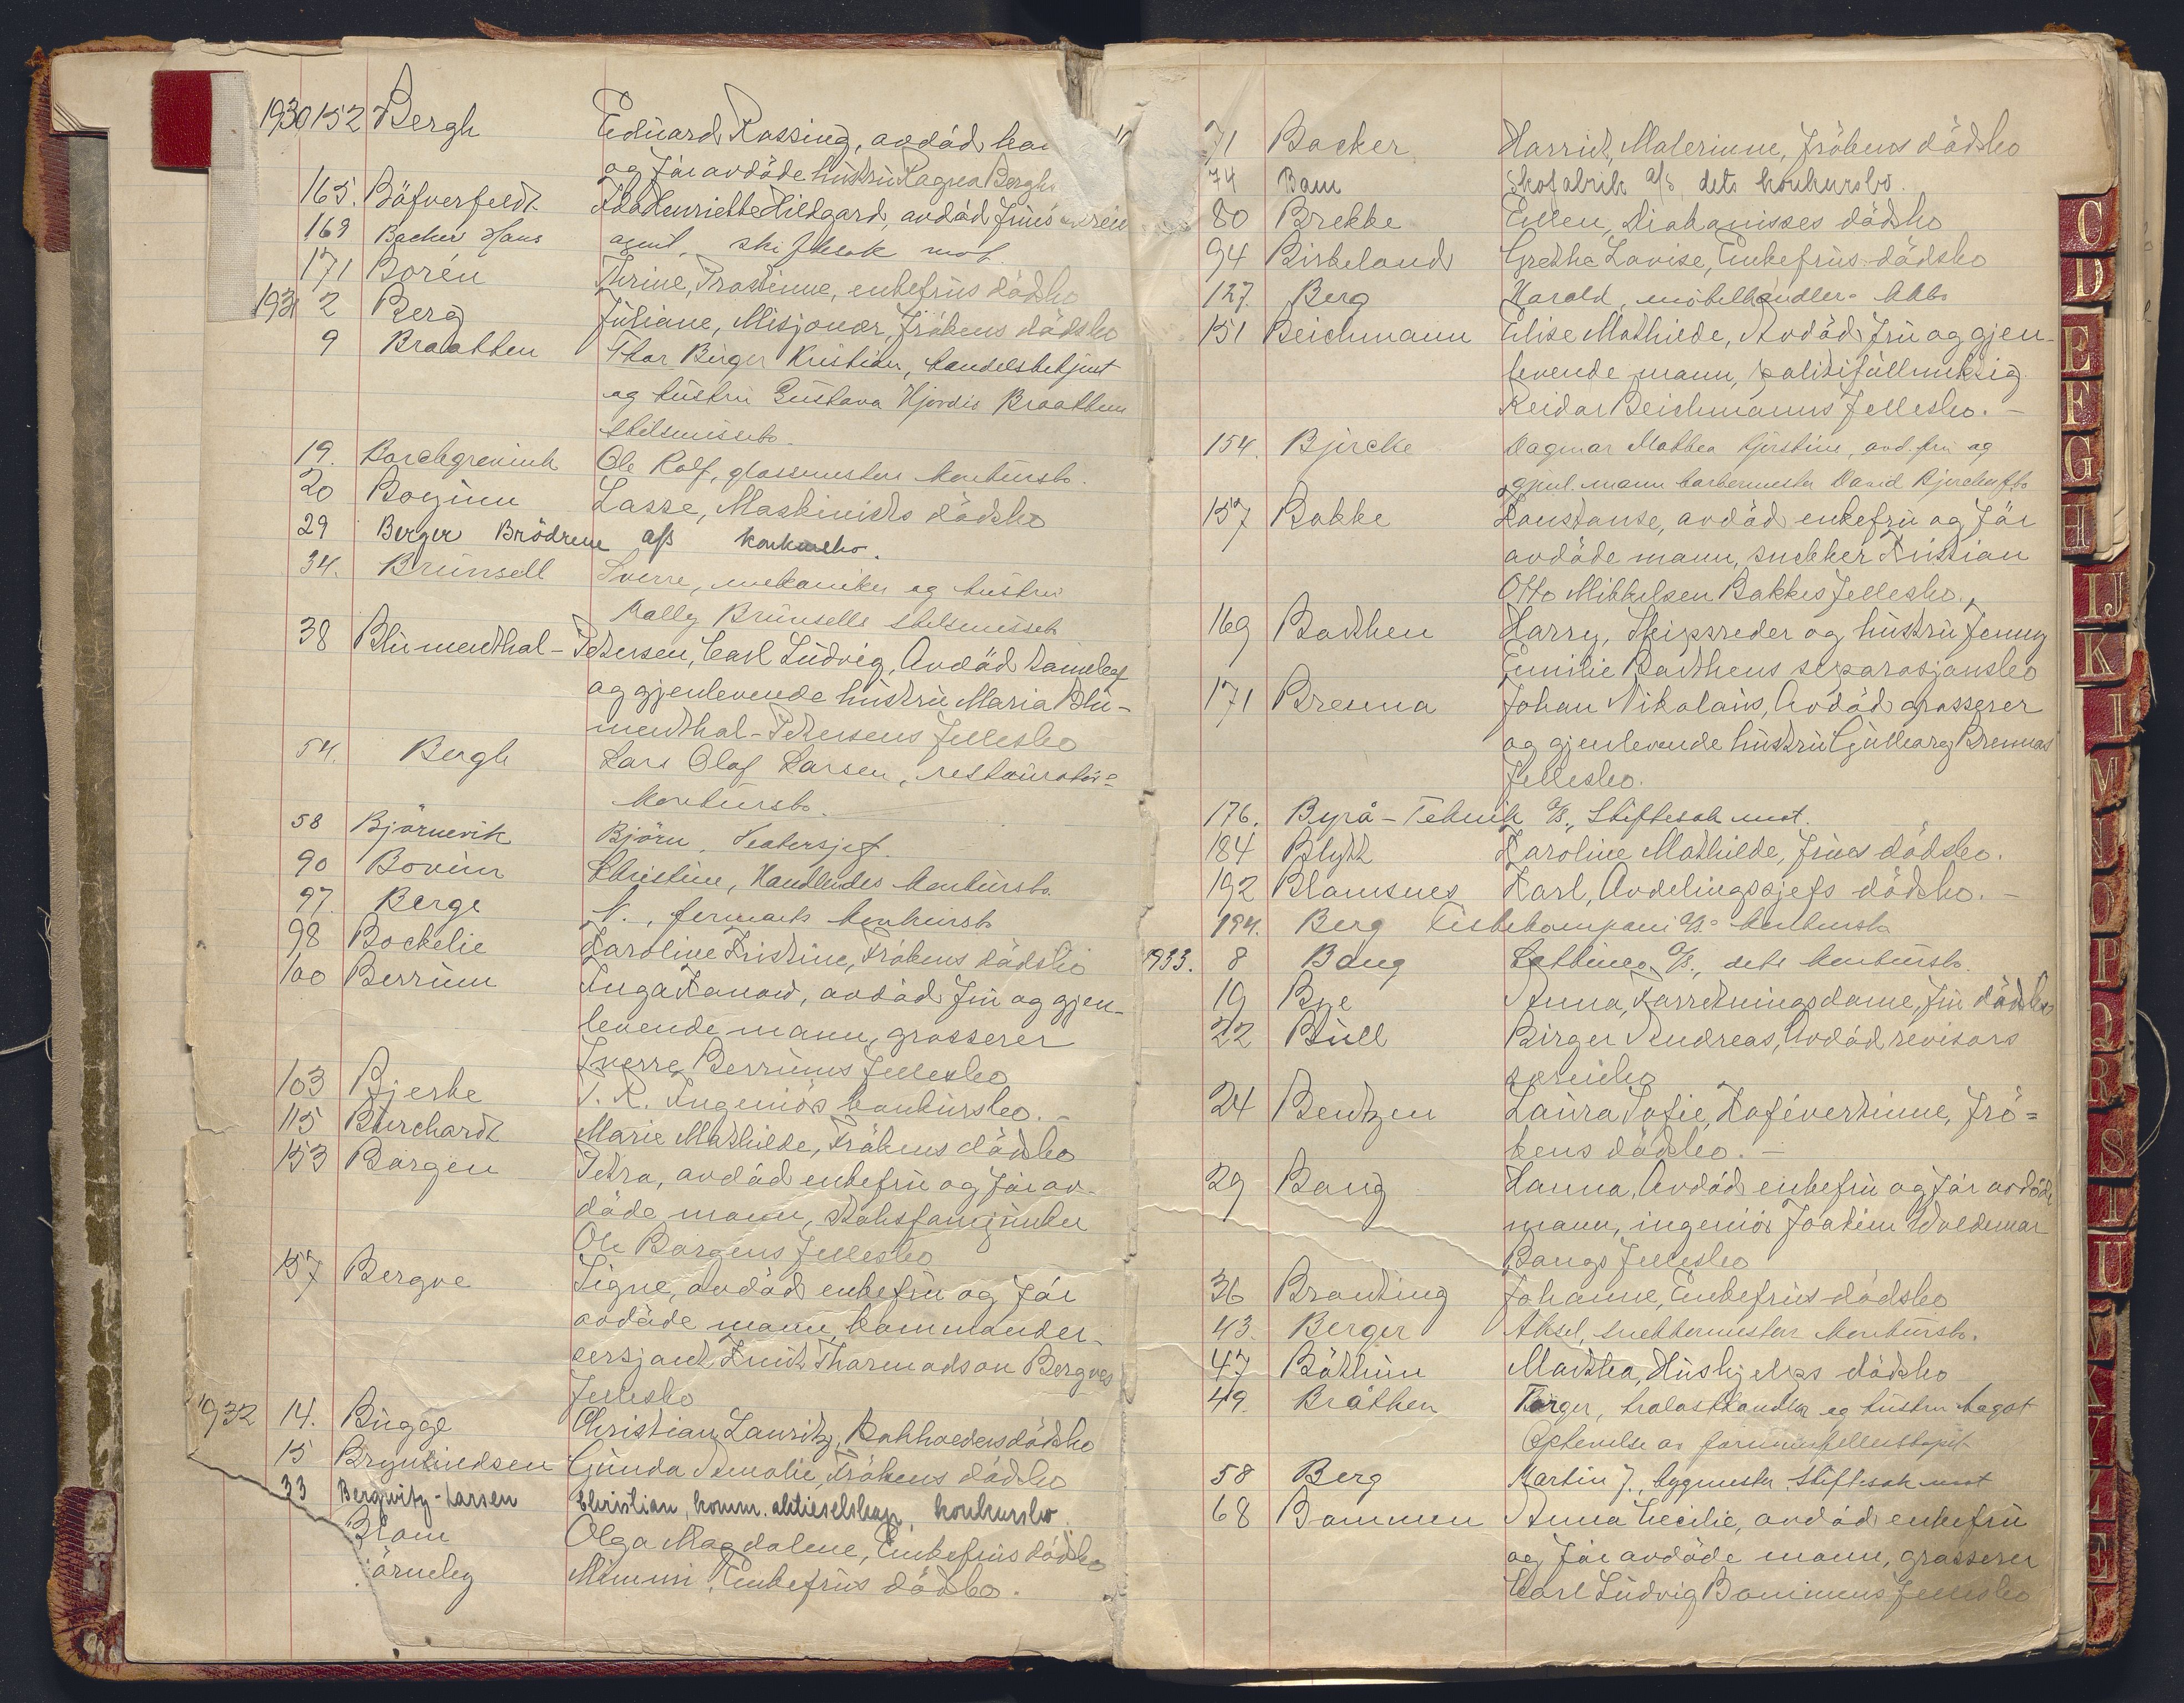 1930 152 Bergh Eduard Rossing, avdöd
og för avdöde hustru Ragna Berghs
165. Böfverfeldt Ida Henriette Hildgard, avdöd frus
169 Backer Hans agent, skiftesak mot.
171 Borén Thrine, enkefrus dödsbo
1931 2 Berg Juliane, Misjonær, frökens dödsbo
9 Braathen Thor Birger Kristian, handelsbetjent
og hustru Gustava Hjördis Braathens
skilsmissebo.
19. Borchgrevink Ole Rolf, glassmesters konkursbo.
20 Lasse, Maskinists dödsbo
29 Berger Brödrene A/S konkursbo.
34. Brünsell Sverre, mekaniker og hustru
Mally Brünsells skilsmissebo
38 Blumenthal-Petersen, Carl Ludvig, Avdöd
og gjenlevende hustru Maria Blu-
menthal-Petersens fellesbo
54. Bergh Lars Olaf Larsen, restauratör=
konkursbo.
58 Björnevik Björn, Teatersjef.
90 Bovim Christine, Handlendes konkursbo.
97. Berge N., fermanks konkursbo
98 Bockelie Karoline Kristine, Frökens dödsbo
100 Berrum Inga avdöd fru og gjen-
levende mann, grosserer
Sverre Berrums fellesbo
103 Bjerke T. R. Ingeniörs konkursbo. -
115 Burchardt Marie Mathilde, Frökens dödsbo
153 Borgen Petra, avdöd enkefru og för av-
döde mann,
Ole Borgens fellesbo
157 Bergve Signe, avdöd enkefru og för
avdöde mann, kommander-
sersjant Knut Thormodson Bergves
fellesbo
1932 14. Bugge Christian Lauritz, Bokholders dödsbo
15 Brynhildsen Gunda Amalie, Frökens dödsbo
33 Bergwitz-Larsen Christian, komm. aktieselskap, konkursbo.
Blom Olga Magdalene, Enkefrus dödsbo
örneby Mimmi, Enkefrus dödsbo.
71 Backer Harriet, Malerinne, frökens dödsbo
74 Bam Skofabrik A/S, dets konkursbo.
80 Brekke Ellen, Diakonisses dödsbo
94 Birkeland Grethe Lovise, Enkefrus dödsbo
127. Berg Harald, möbelhandler- kkbo
151 Beichmann Elise Mathilde, Avdöd fru og gjen-
levende mann, politifullmektig
Reidar Beichmanns fellesbo. -
154. Bjercke Dagmar Mathea Kjerstine, avd. fru og
gjenl. mann barbermester David Bjerckes fbo
157 Bakke Konstanse, avdöd enkefru og för
avdöde mann, snekker Kristian
Otto Mikkelsen Bakkes fellesbo.
169 Bothen Harry, Skipsreder og hustru Jenny
Emilie Bothens separasjonsbo
171 Brenna Johan Nikolaus, Avdöd grosserer
og gjenlevende hustru Gullborg Brennas
fellesbo.
176. Byrå-Teknik A/S, Skiftesak mot.
184 Blytt Karoline Mathilde, frues dödsbo.
192 Blomsnes Karl, Avdelingssjefs dödsbo. -
194. Berg Fiskekompani A/S- konkursbo
1933. 8 Bang A/S, dets konkursbo.
19 Bye Anna, Forretningsdame, fru dödsbo
22 Bull Birger Andreas, Avdöd revisors
særeiebo
24 Bentzen Laura Sofie, Kafévertinne, Frö=
kens dödsbo. -
29 Bang Hanna, Avdöd enkefru og för avdöde
mann, ingeniör Joakim Woldemar
Bangs fellesbo
36 Branting Johanne, Enkefrus dödsbo
43. Berger Aksel, snekkermester konkursbo.
47 Böthun Martha, Hushjelps dödsbo
49. Bråthen Börger, trelasthandler og hustru Dagot
Ophevelse av formuesfellesskapet
58 Berg Martin J., byggmester, Skiftesak mot
68 Bommen Anna Cecilie, avdöd enkefru
og för avdöde mann, grosserer
Carl Ludvig Bommens fellesbo
C
D
E
F
G
H
IJ
K
L
M
N
O
P
Q
R
S
T
U